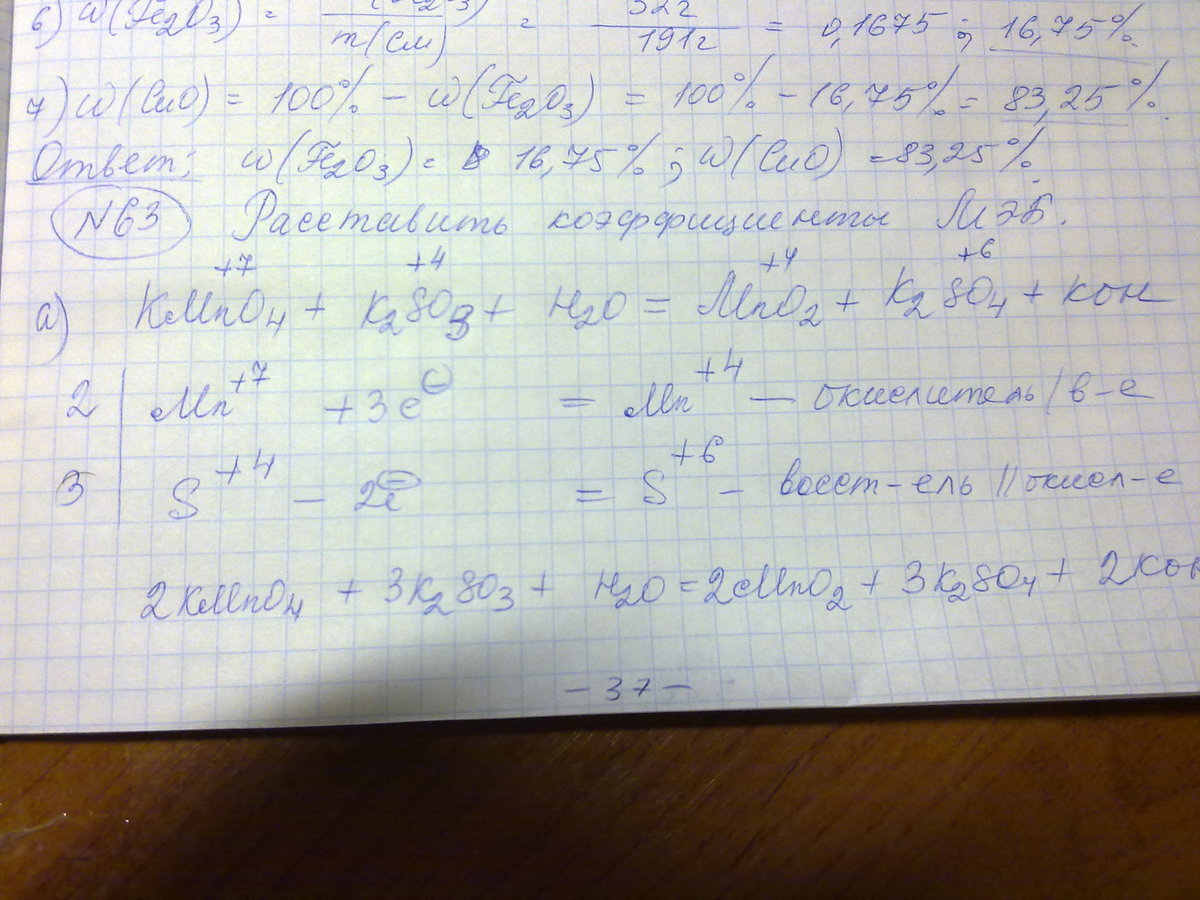 6) w(Fe₂O₃) = m(Fe₂O₃)/m(см) = 32г/191г = 0,1675 ; 16,75%
7) w(CuO) = 100% - w(Fe₂O₃) = 100% - 16,75% = 83,25%.
Ответ: w(Fe₂O₃) = 16,75% ; w(CuO) = 83,25%.
N63 Расставить коэффициенты МЭБ.
+7 +4 +4 +6
а) KMnO₄ + K₂SO₃ + H₂O = MnO₂ + K₂SO₄ + KOH
2 | Mn⁺⁷ + 3e⁻ = Mn⁺⁴ — окислитель / в-е
3 | S⁺⁴ - 2e⁻ = S⁺⁶ - восст-ель // окисл-е
2KMnO₄ + 3K₂SO₃ + H₂O = 2MnO₂ + 3K₂SO₄ + 2KOH
- 37 -